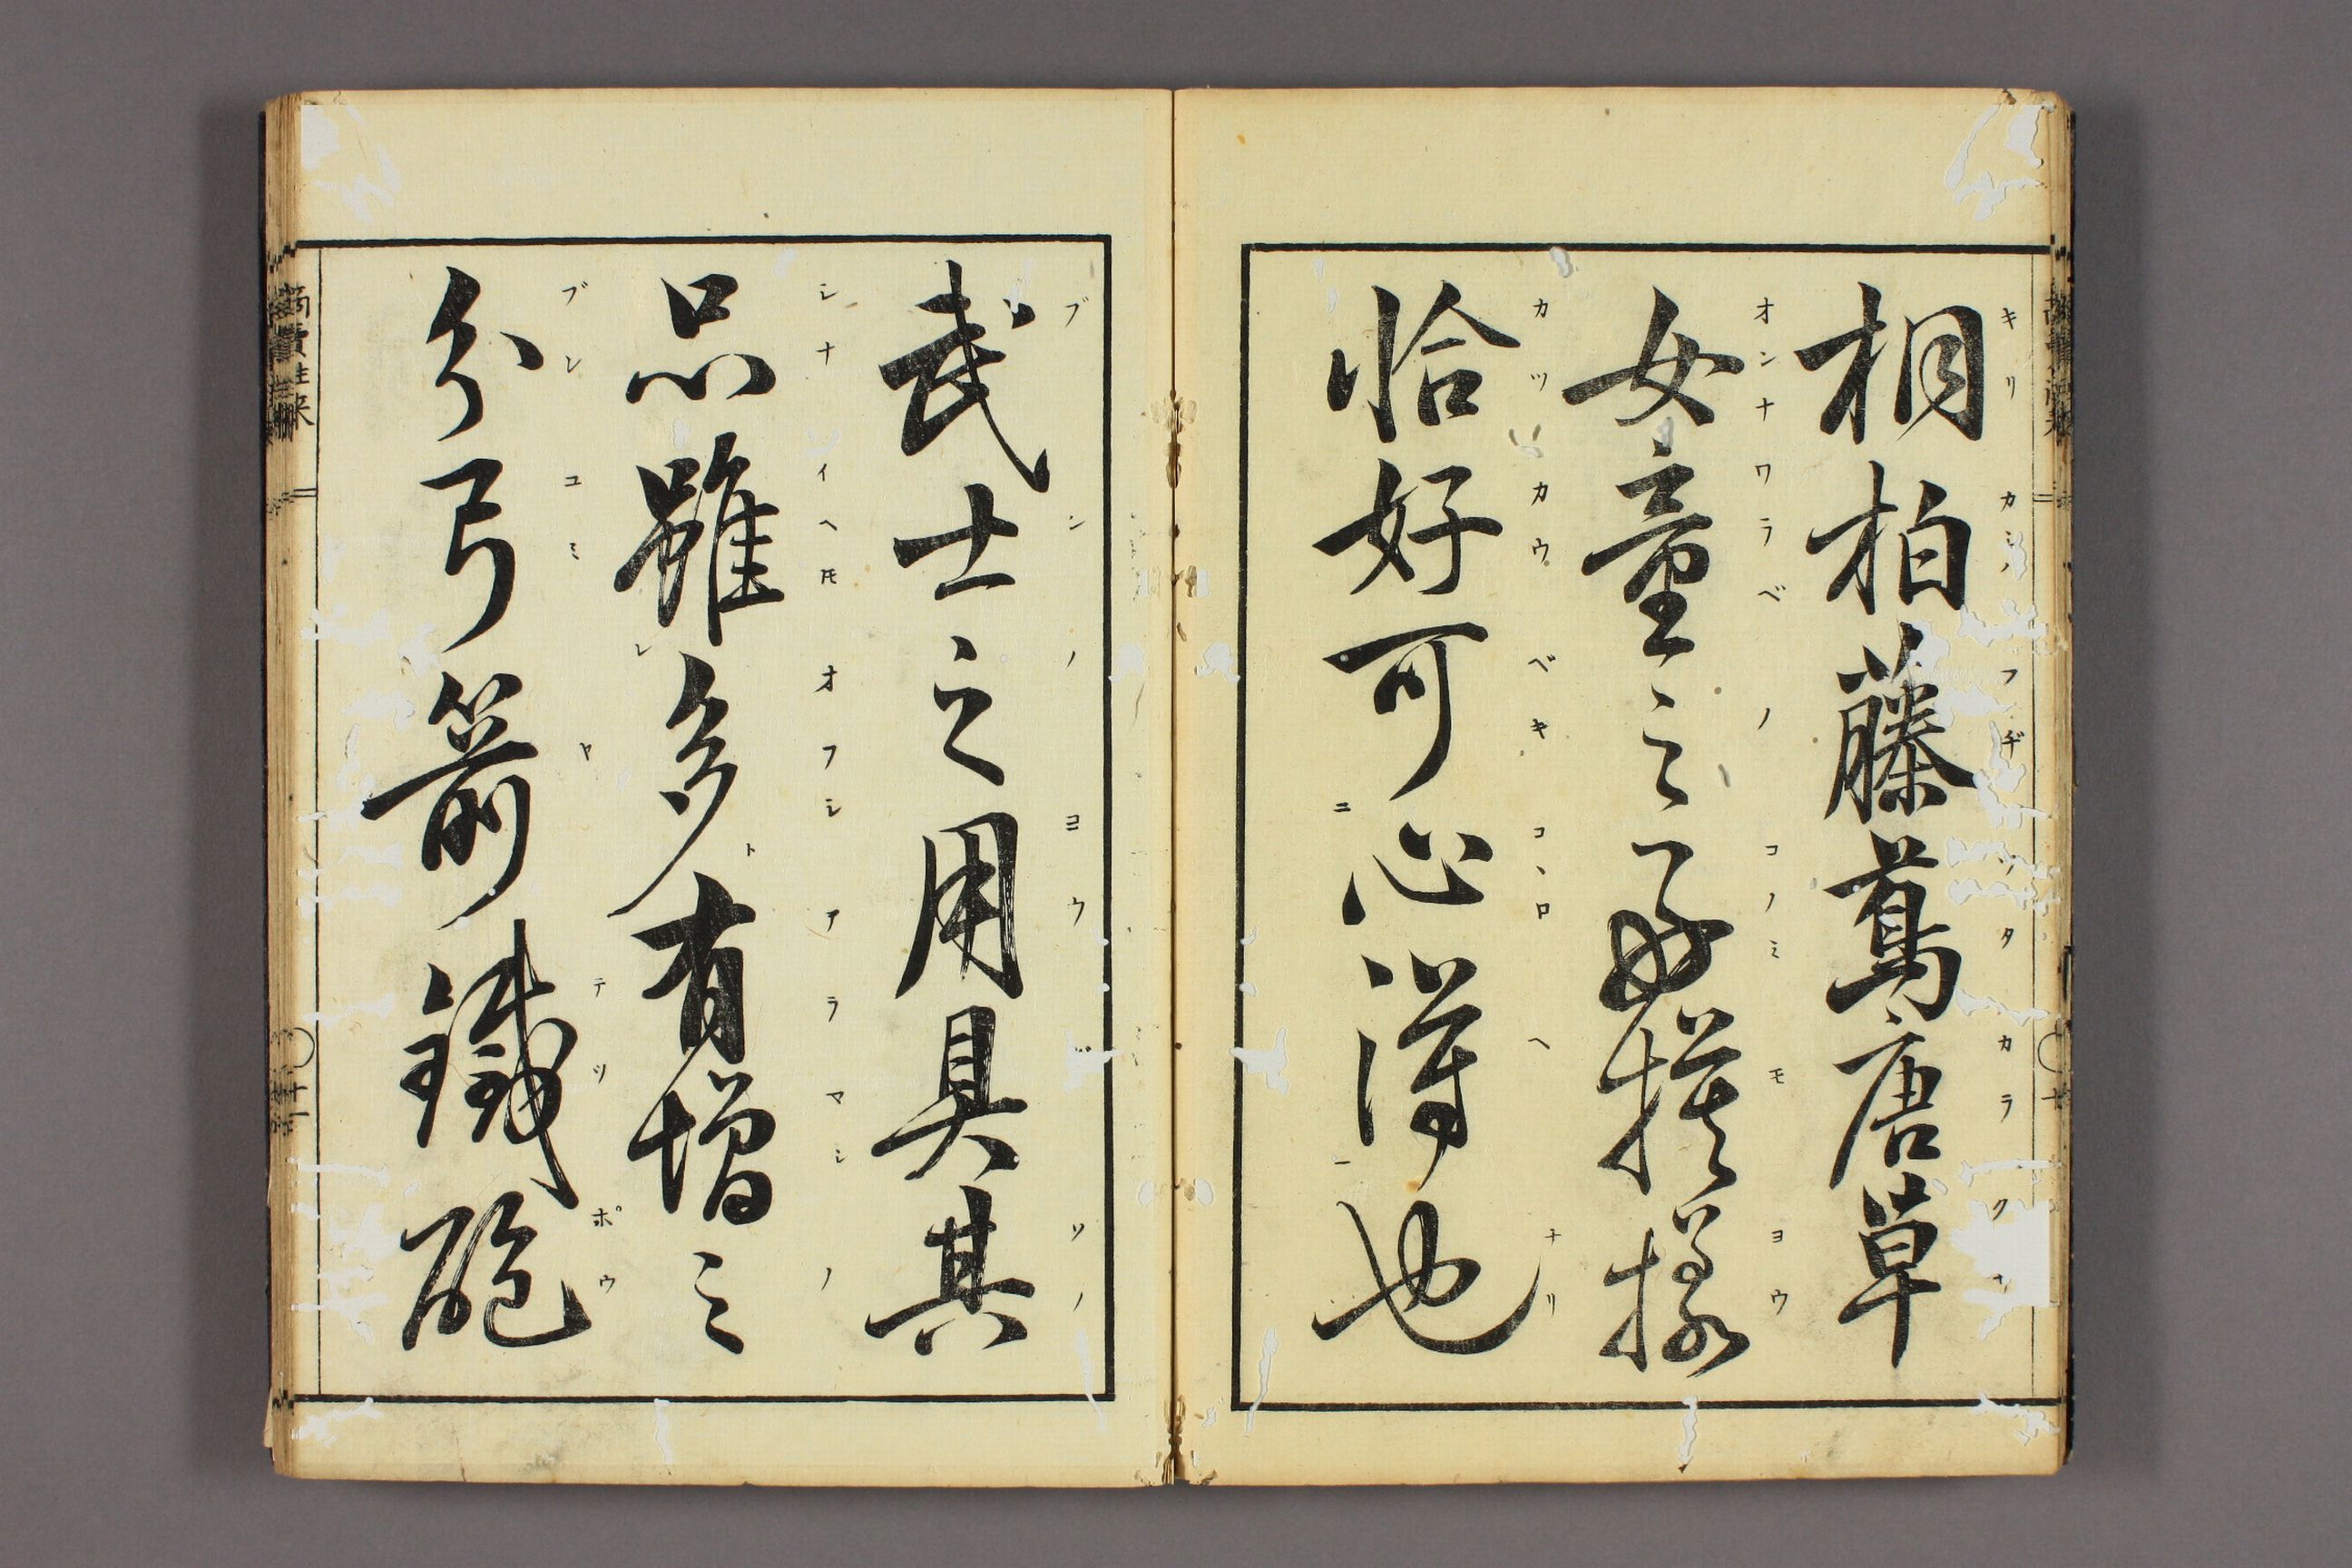 桐柏藤蔦唐草
キリカシハフヂツタカラクサ
女童之好模様
オンナワラベノコノミモヨウ
恰好可心得也
カツカウベキコヽロヘナリ
ニ一
武士之用具其
ブシノヨウグソノ
品雖多有増之
シナイヘ𪜈オフシアラマシノ
レト
分弓箭鐵砲
ブンユミヤテツポウ
商賣往来